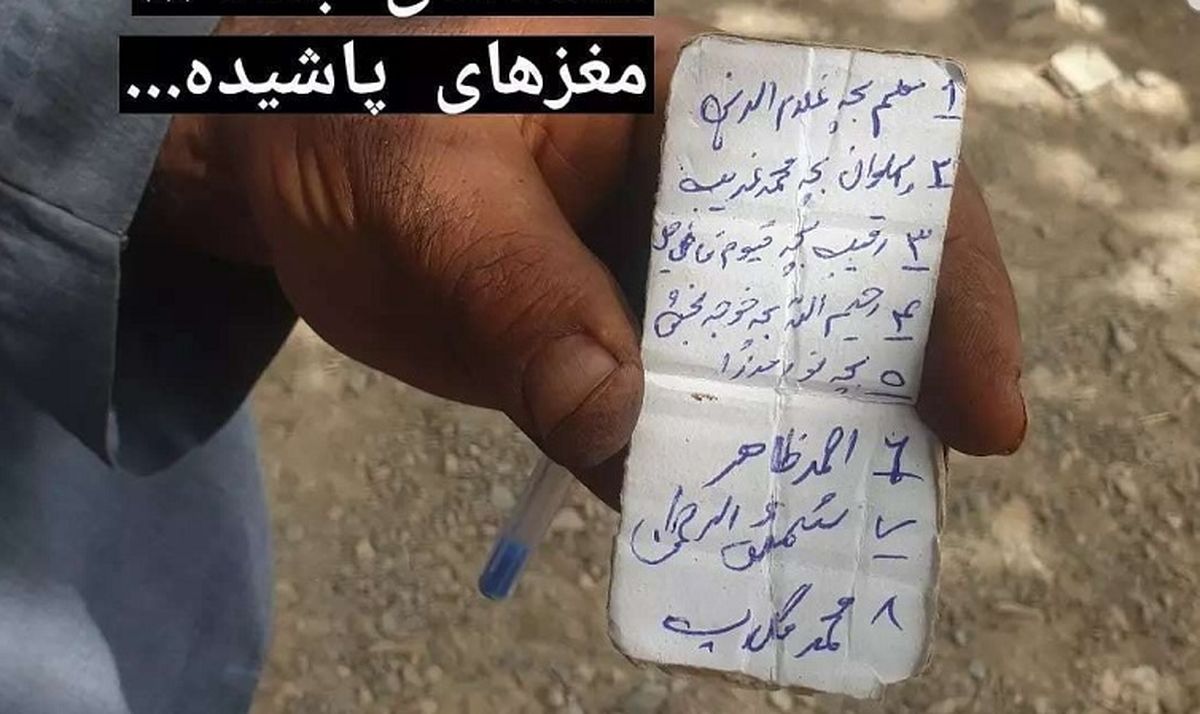 مغزهای پاشیده...
۱ معلم بچه غلام الدین
۲ پهلوان بچه محمد غریب
۳ رقیب بچه قیوم
۴ رحیم الله بچه خوجه بخش
۵ بچه نور
۶ احمد ظاهر
۷ شفیق الرحمن
۸ محمد گلاب